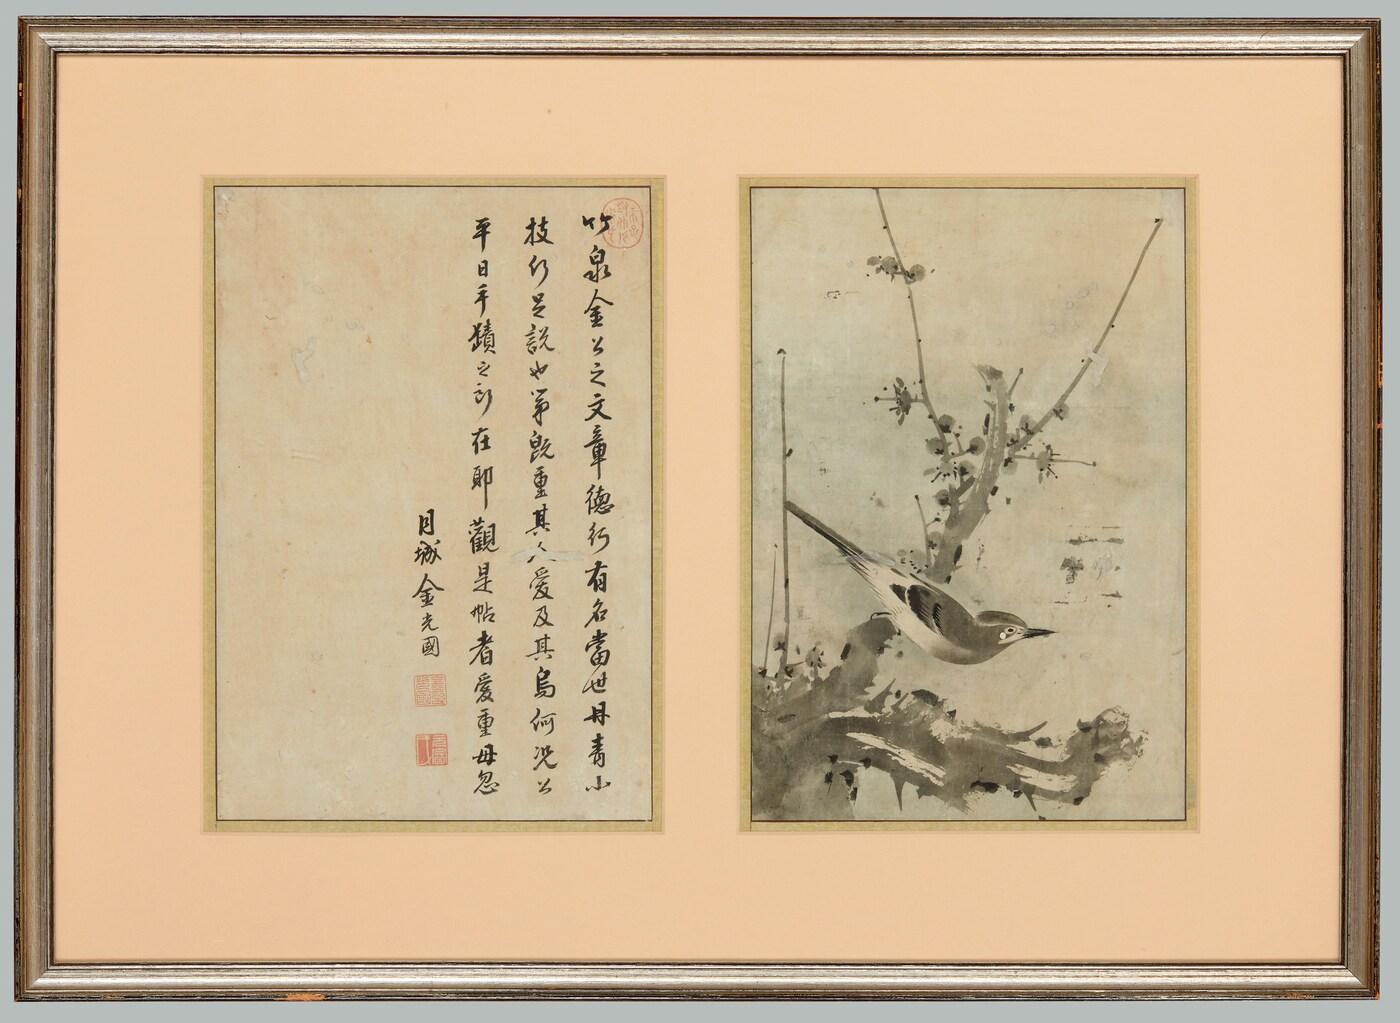 竹泉金公之文章德行有名當世丹靑小
技何足說也第旣重其人愛及其烏何況公
平日手蹟之所在耶觀是帖者愛重毋忽
月城金光國